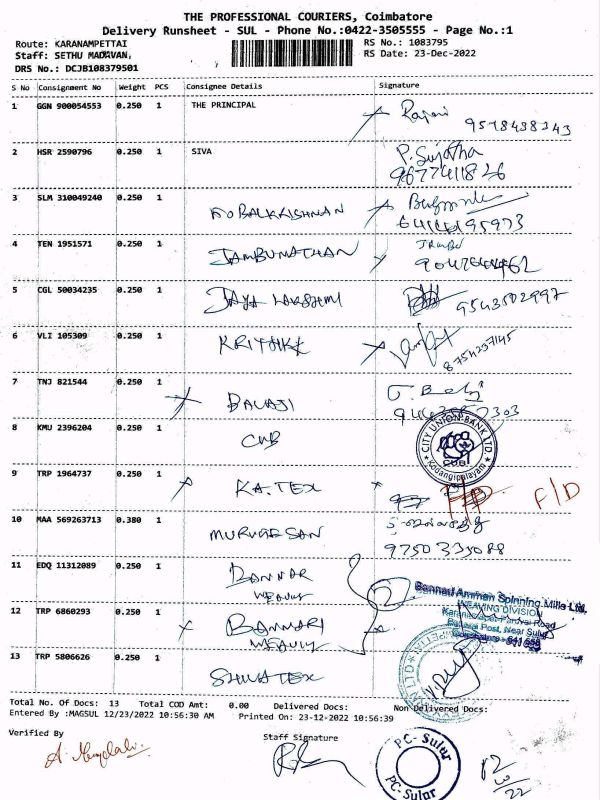 THE PROFESSIONAL COURIERS, Coimbatore
Delivery Runsheet - SUL - Phone No.:0422-3505555 - Page No.:1
Route: KARANAMPETTAI
RS No.: 1083795
Staff: SETHU MADAVAN,
RS Date: 23-Dec-2022
DRS No.: DCJB108379501
S No Consignment No Weight PCS Consignee Details Signature
1 GGN 900054553 0.250 1 THE PRINCIPAL
9578438343
2 HSR 2590796 0.250 1 SIVA P. Sujatha
9677411826
3 SLM 310049240 0.250 1 GOBALKRISHNAN
4 TEN 1951571 0.250 1 JAMBUNATHAN
5 CGL 50034235 0.250 1 JAYA LAKSHMI 9543502997
6 VLI 105309 0.250 1 KRITHIKK
8754237145
7 TNJ 821544 0.250 1 BALAJI
8 KMU 2396204 0.250 1 CUB
CITY UNION BANK LTD.
CUB
Kodangipalayam
9 TRP 1964737 0.250 1 KA.TEX F/D
10 MAA 569263713 0.380 1 MURUGESAN
9750335088
11 EDQ 11312089 0.250 1 BANNAR
Bannari Amman Spinning Mills Ltd.
WEAVING DIVISION
12 TRP 6860293 0.250 1 BANNARI
13 TRP 5806626 0.250 1 SHIVA TEX
Total No. Of Docs: 13 Total COD Amt: 0.00 Delivered Docs: Non Delivered Docs:
Entered By :MAGSUL 12/23/2022 10:56:30 AM Printed On: 23-12-2022 10:56:39
Verified By
Staff Signature
PC- Sulur
PC- Sulur